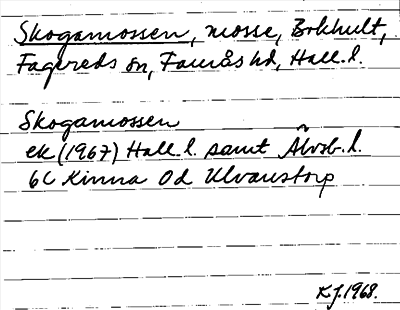 Skogamossen, mosse, Bokhult,
Fagereds sn, Faurås hd, Hall. l.
Skogamossen
ek (1967) Hall. l. samt Älvsb. l.
6C Kinna 0d Ulvanstorp
K J. 1968.